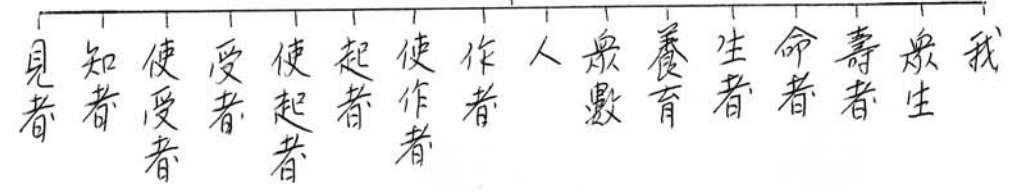 我
眾生
壽者
命者
生者
養育
眾數
人
作者
使作者
起者
使起者
受者
使受者
知者
見者